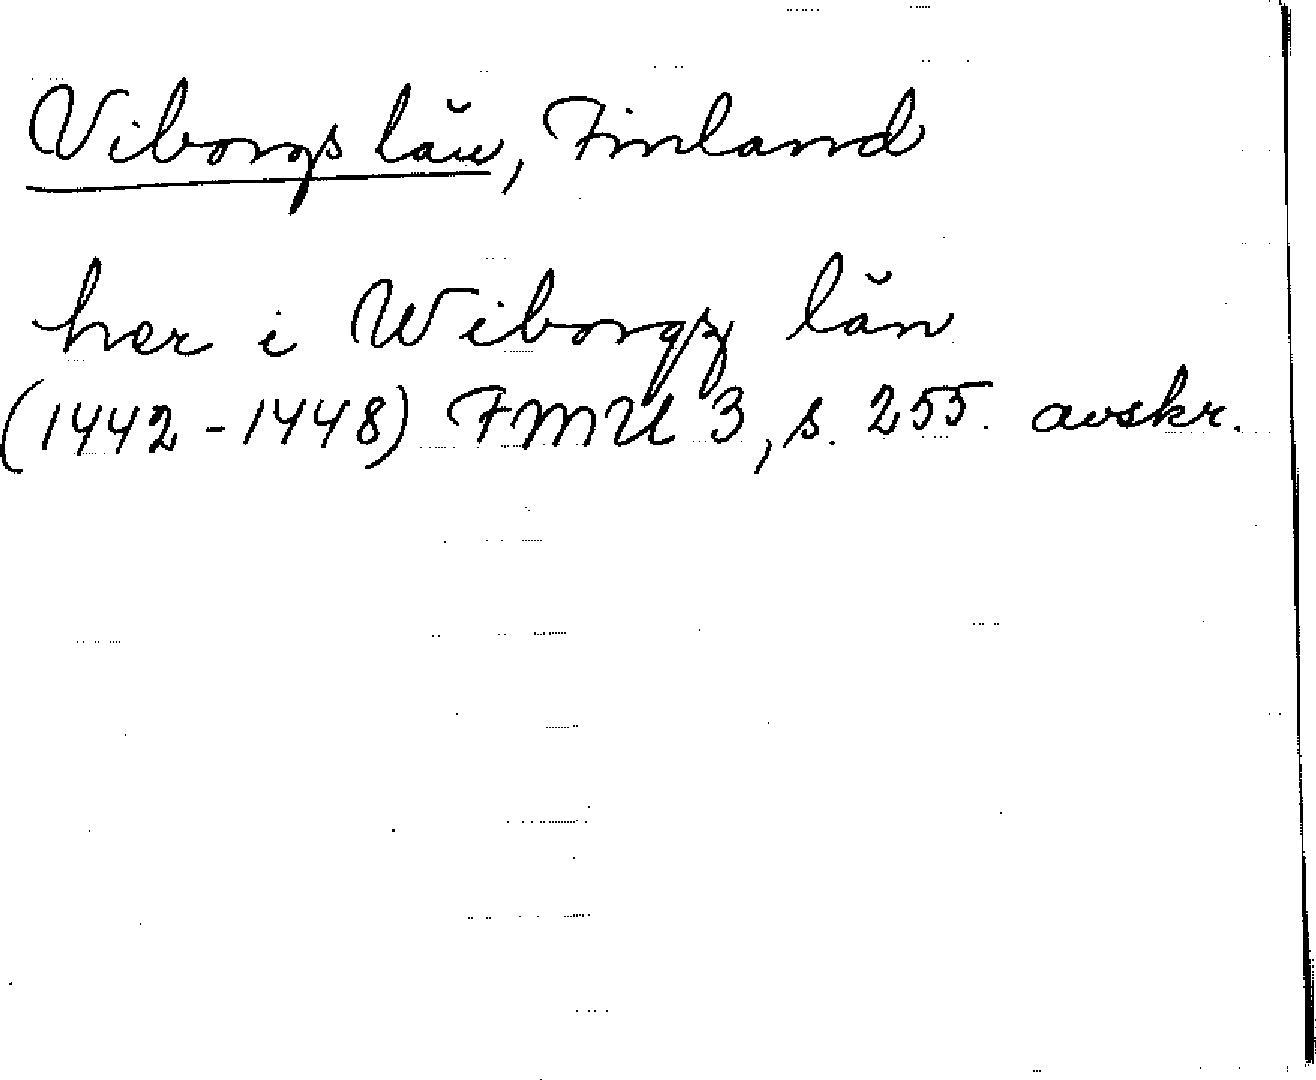 Viborgs län, Finland
her i Wiborgz län
(1442-1448) FMU 3, s. 255. avskr.